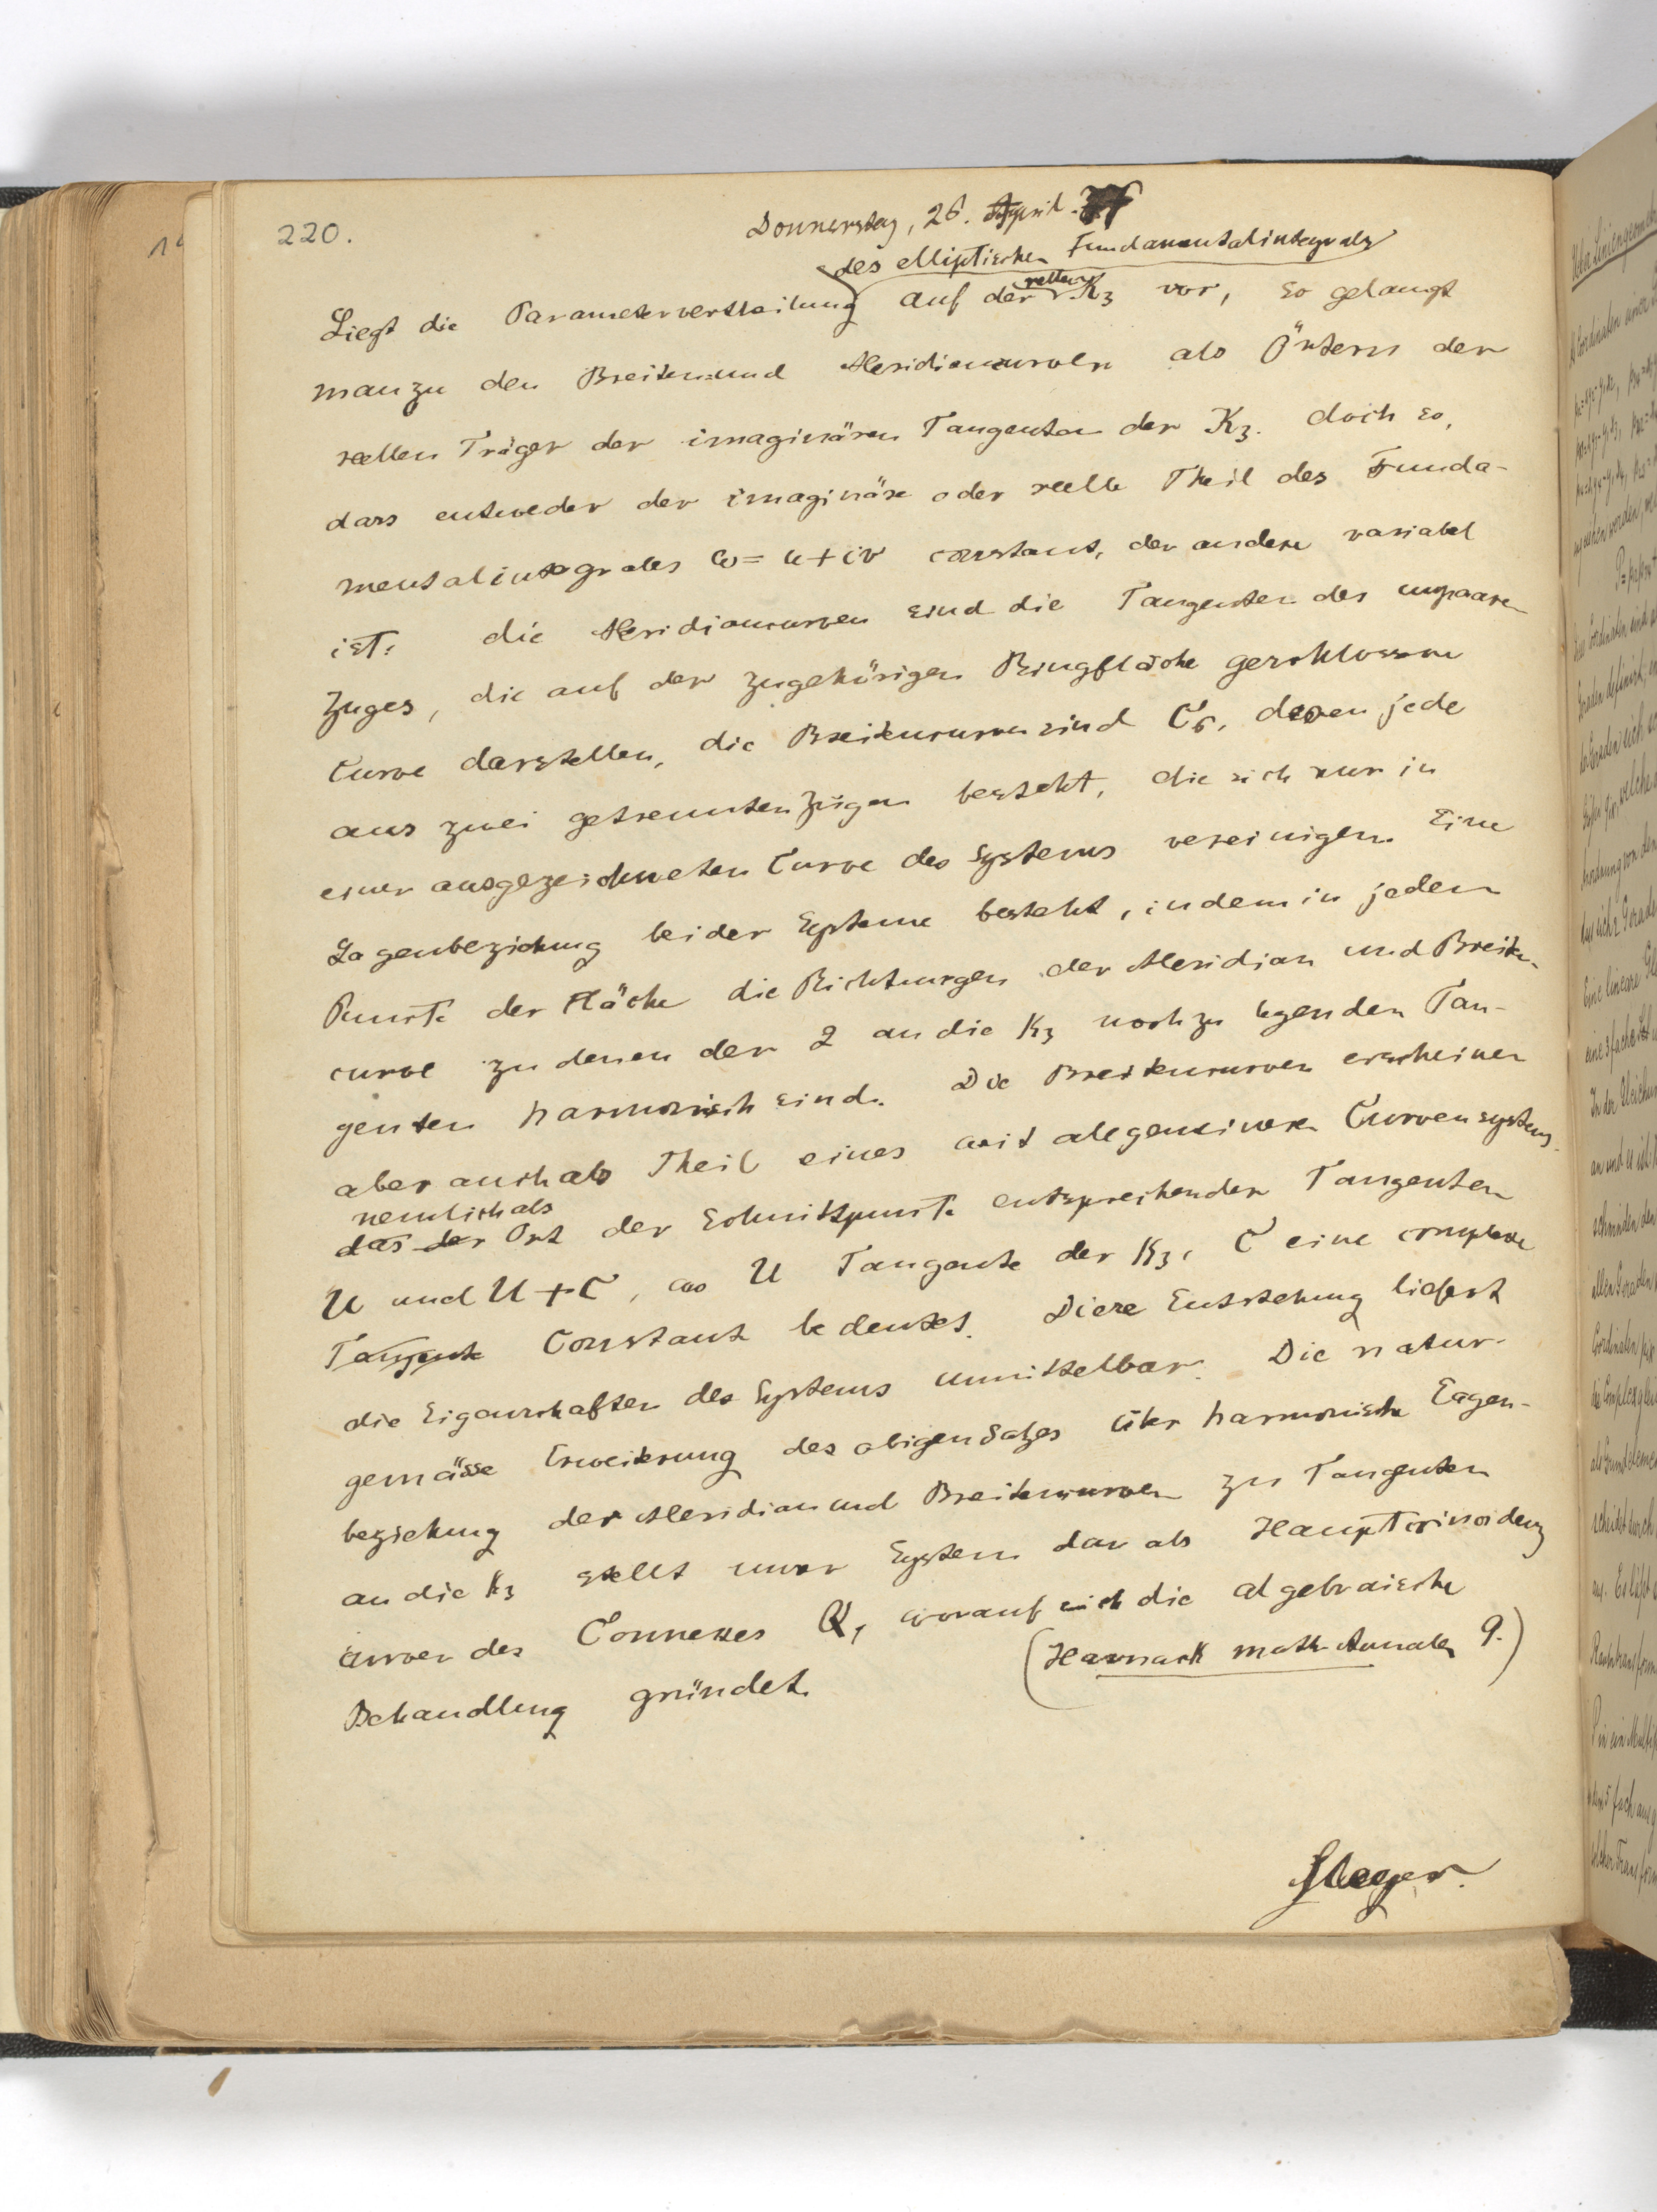 220.
Donnerstag, 26. April.
des elliptischen Fundamentalintegrals
Liegt die Parametervertheilung auf der reellen K3 vor, so gelangt
man zu den Breiten- und Meridiancurven als Örtern der
reellen Träger der imaginären Tangenten der K3. doch so,
dass entweder der imaginäre oder reelle Theil des Funda-
mentalintegrales w = u + iv constant, der andere variabel
ist. die Meridiancurven sind die Tangenten des unpaaren
Zuges, die auf der zugehörigen Ringfläche geschlossene
Curve darstellen, die Breitencurven sind C6, deren jede
aus zwei getrennten Zügen besteht, die sich nur in
einer ausgezeichneten Curve des Systems vereinigen. Eine
Lagenbeziehung beider Systeme besteht, indem in jedem
Punkte der Fläche die Richtungen der Meridian und Breiten-
curve zu denen der 2 an die K3 noch zu legenden Tan-
genten harmonisch sind. Die Breitencurven erscheinen
aber auch als Theil eines weit allgemeineren Curvensystems.
nemlich als
das der Ort der Schnittpunkte entsprechender Tangenten
U und U + C, wo U Tangente der K3, C eine complexe
Tangente Constant bedeutet. Diese Entstehung liefert
die Eigenschaften des Systems unmittelbar. Die natur-
gemässe Erweiterung des obigen Satzes über harmonische Lagen-
beziehung der Meridian und Breitencurven zu Tangenten
an die K3 stellt unser System dar als Hauptcoincidenz
curven des Connexes Q, worauf sich die algebraische
Behandlung gründet.
(Harnack math. Annalen 9.)